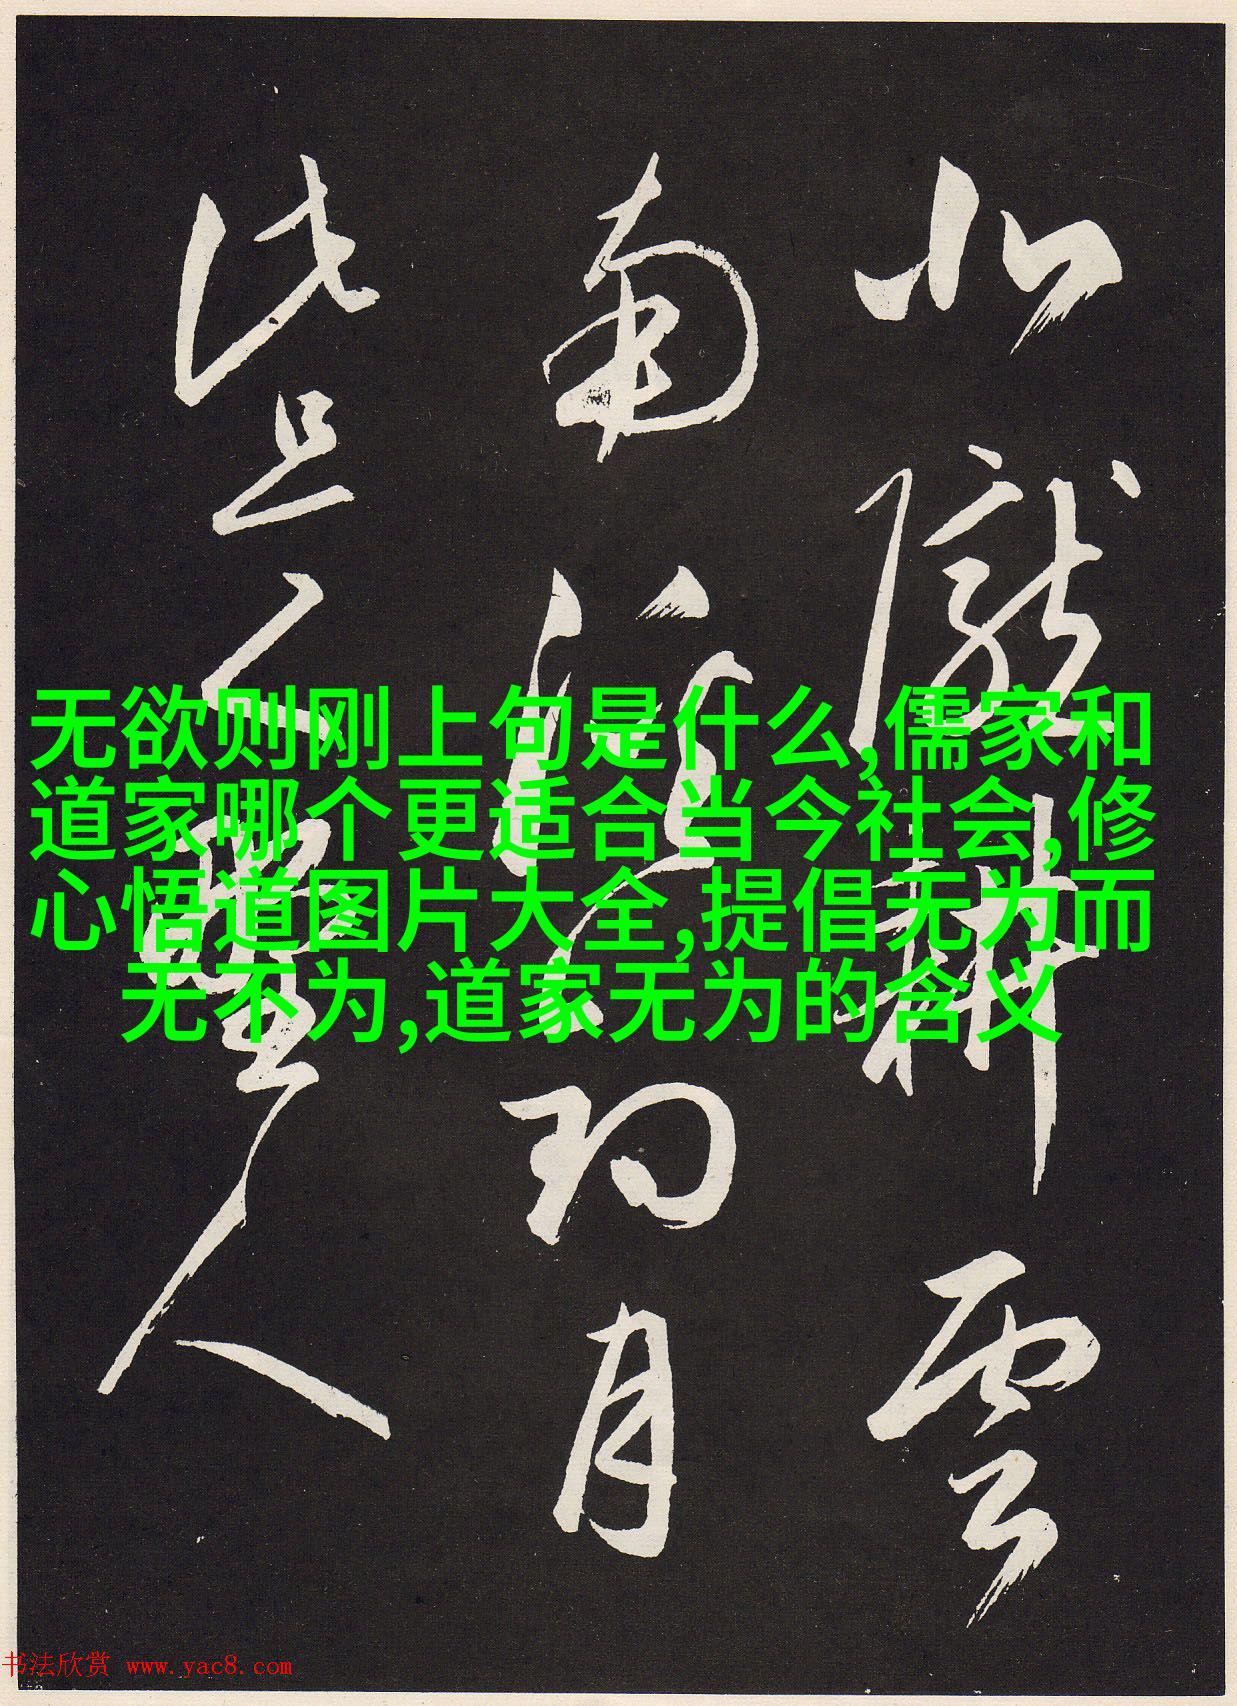 北隴耕雲
南溪釣月
此是野人
无欲则刚上句是什么,儒家和
道家哪个更适合当今社会,修
心悟道图片大全,提倡无为而
无不为,道家无为的含义
书法欣赏 www.yac8.com